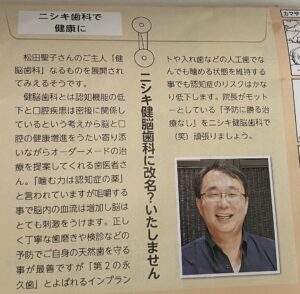 ニシキ歯科で
健康に
ニシキ健脳歯科に改名？いたしません
松田聖子さんのご主人「健
脳歯科」なるものを展開され
てみえるそうです。
健脳歯科とは認知機能の低
下と口腔疾患は密接に関係
しているという考えから脳と口
腔の健康増進をうたい寄り添
いながらオーダーメードの治
療を提案してくれる歯医者さ
ん。「噛む力は認知症の薬」
と言われていますが咀嚼する
事で脳内の血流は増加し脳は
とても刺激をうけます。正し
く丁寧な歯磨きや検診などの
予防でご自身の天然歯を守る
事が最善ですが「第２の永
久歯」とよばれるインプラン
トや入れ歯などの人工歯でな
んでも噛める状態を維持する
事でも認知症のリスクはかな
り低下します。院長がモット
ーとしている「予防に勝る治
療なし」をニシキ健脳歯科で
（笑）頑張りましょう。